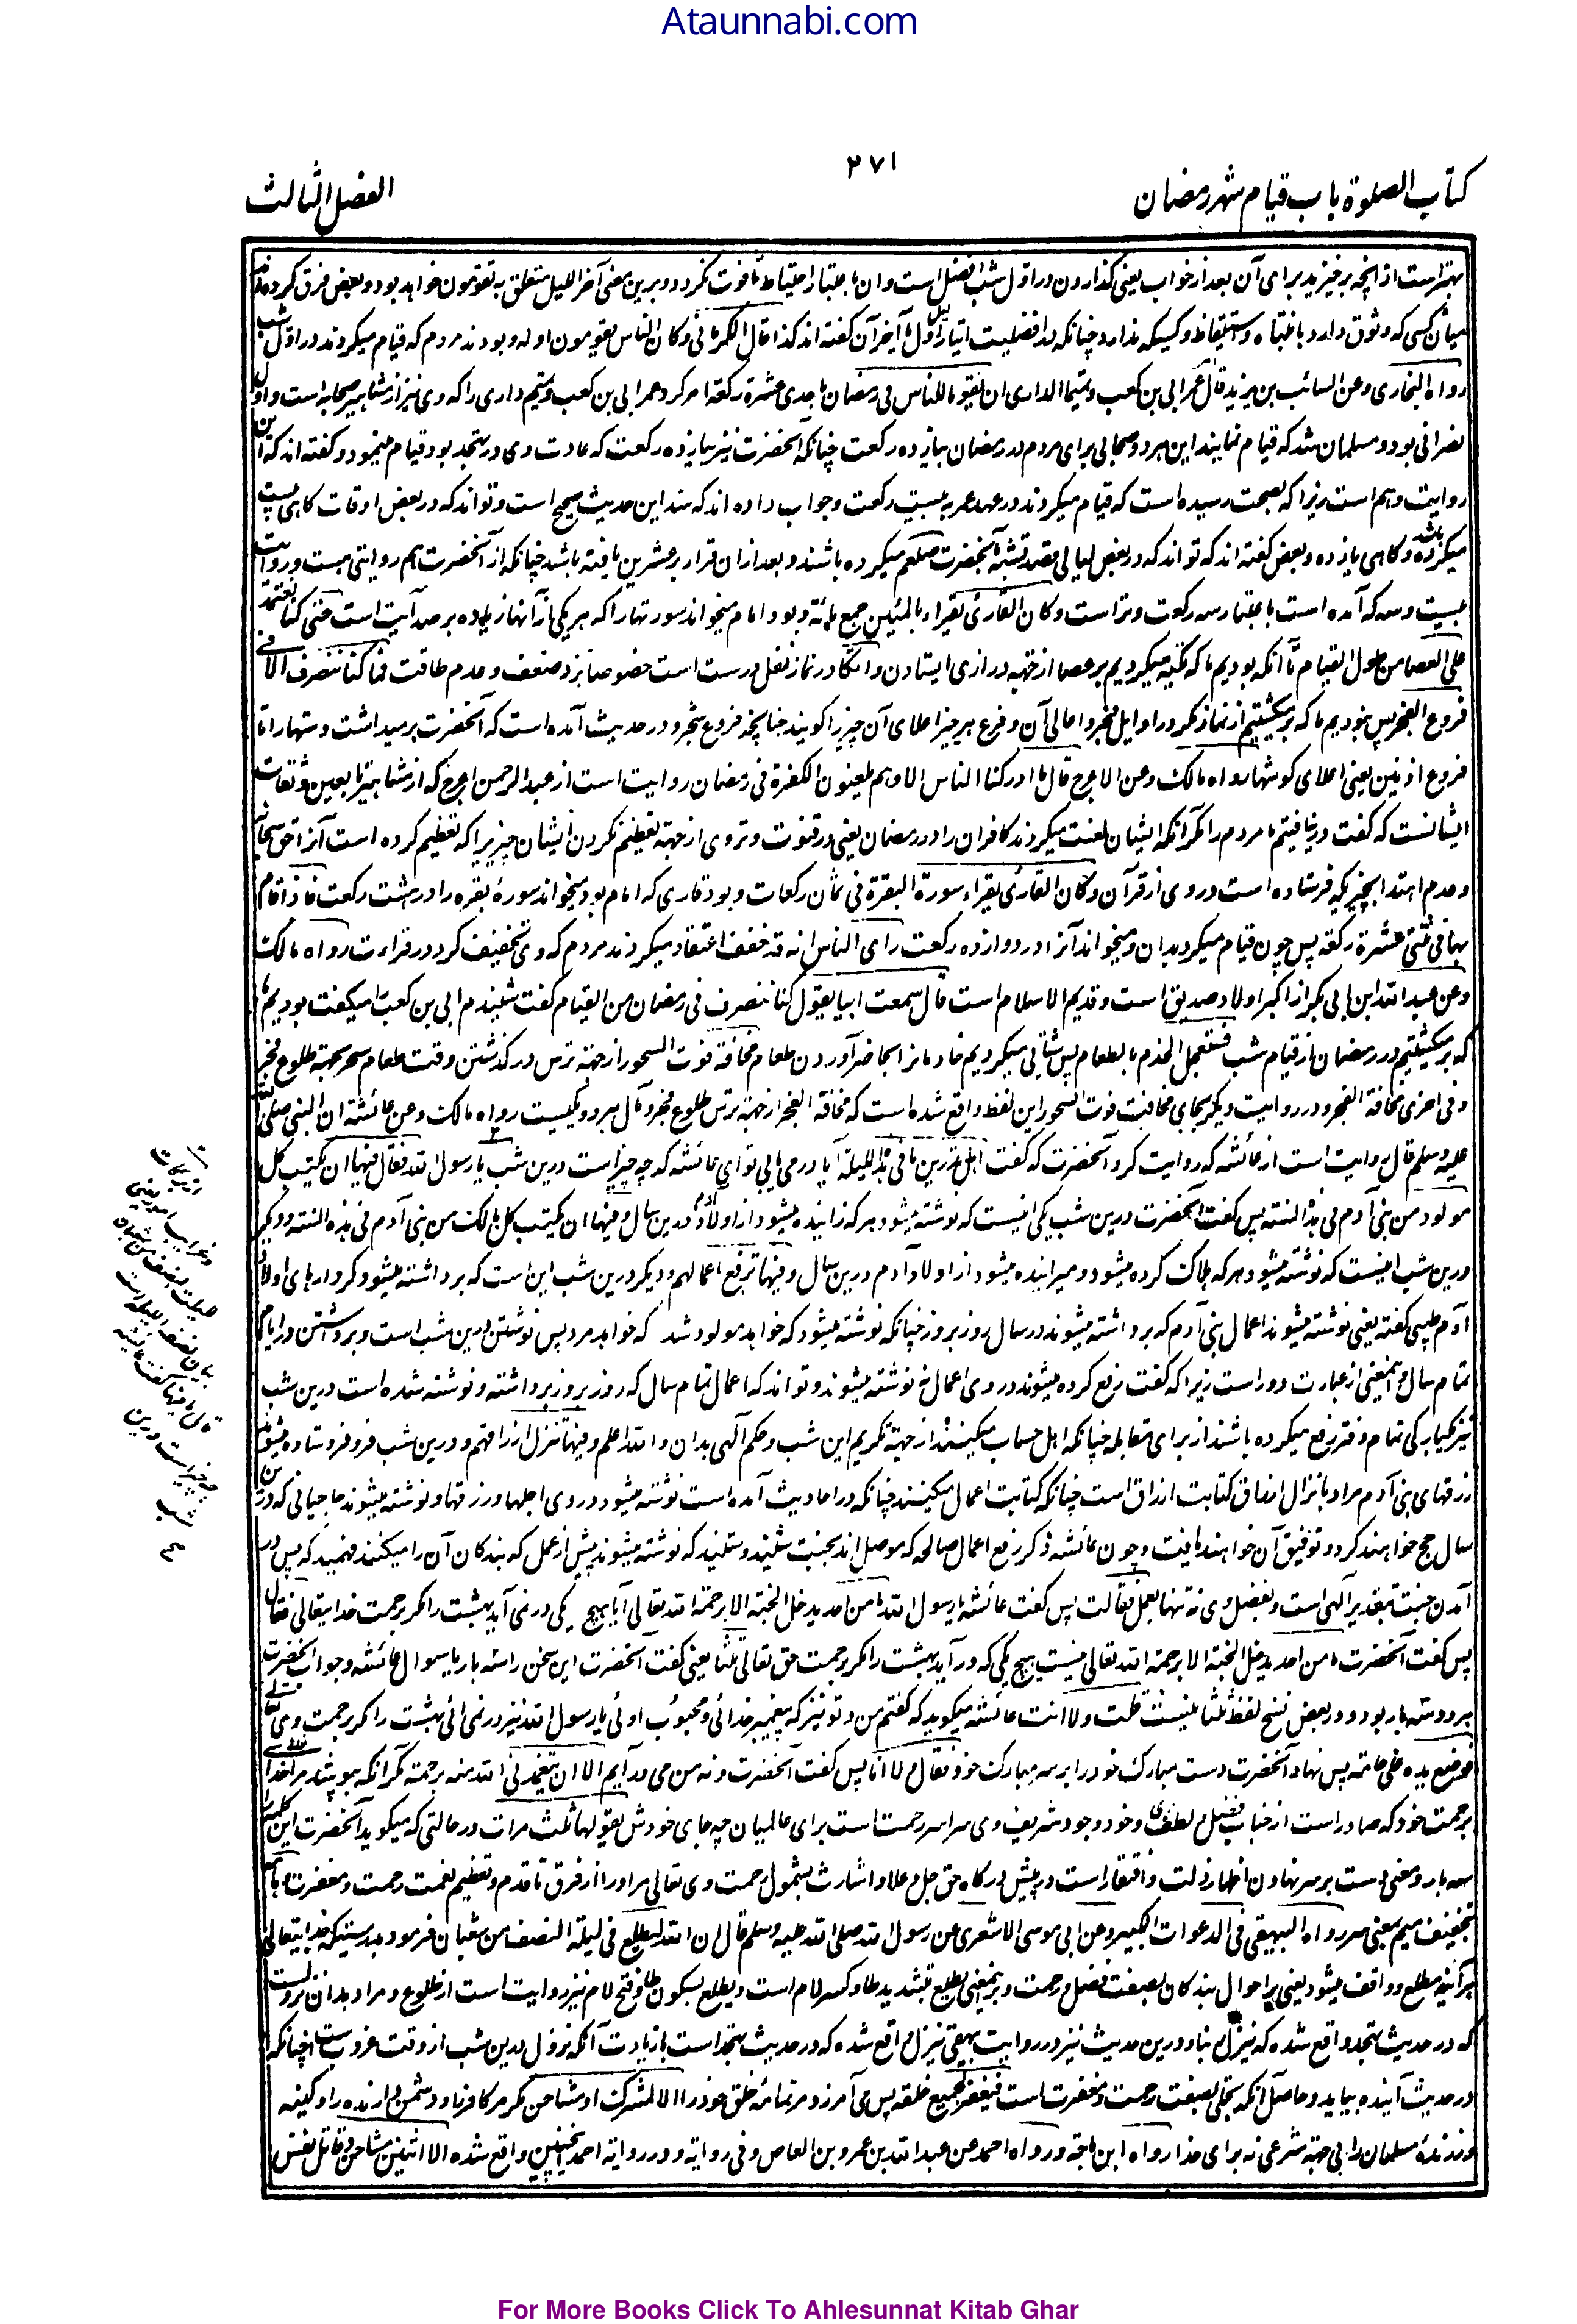 Ataunnabi.com
۲۷۱
کتاب الصلوة باب قیام شهر رمضان
الفصل الثالث
بهتر است از انچه برخیزید برای آن بعد از خواب یعنی گذاردن در اول شب افضل است و ان باعتبار احتیاط تا فوت نگردد و برین معنی آخر اللیل متعلق به تقومون خواهد بود و بعض فرق کرده‌اند
میان کسی که وثوق دارد بانتباه و استیقاظ و کسیکه ندارد چنانکه در افضلیت ایتار اول لیل یا آخر آن گفته اند کذا قال الکرمانی و کان الناس یقومون اوله و بودند مردم که قیام میکردند در اول شب
رواه البخاری وعن السائب بن یزید قال امر عمر ابی بن کعب و تمیما الداری ان یقوما للناس فی رمضان باحدی عشرة رکعة امر کرد عمر ابی بن کعب و تمیم داری را که وی نیز از مشاهیر صحابه است و اول
نصرانی بود و مسلمان شد که قیام نمایند این هر دو صحابی برای مردم در رمضان بیازده رکعت چنانکه آنحضرت نیز بیازده رکعت که عادت وی در تهجد بود قیام مینمود و گفته اند که این
روایت وهم است زیرا که بصحت رسیده است که قیام میکردند در عهد عمر به بیست رکعت و جواب داده اند که سند این حدیث صحیح است و تواند که در بعض اوقات گاهی بیست
میکرده باشد و گاهی یازده و بعض گفته اند که تواند که در بعض لیالی قصد تشبه بآنحضرت صلعم میکرده باشند و بعد ازان قرار بر عشرین یافته باشد چنانکه از آنحضرت هم روایتی هست و روایت
بیست و سه که آمده است باعتبار سه رکعت وتر است و کان القاری یقرأ بالمئین جمع مائة و بود امام میخواند سورتها را که هر یکی از آنها زیاده بر صد آیت است حتی کنا نعتمد
علی العصا من طول القیام تا آنکه بودیم ما که تکیه میکردیم بر عصا از جهة درازی ایستادن و اتکا در نماز نفل درست است خصوصا نزد ضعف و عدم طاقت فما کنا ننصرف الا فی
فروع الفجر پس نبودیم ما که برمیگشتیم از نماز مگر در اوایل فجر و اعالی آن و فرع هر چیز اعلای آن چیز را گویند چنانچه فروع شجر و در حدیث آمده است که آنحضرت برمیداشت دستها را تا
فروع اذنین یعنی اعلای گوشها رواه مالک وعن الاعرج قال ما ادرکنا الناس الا وهم یلعنون الکفرة فی رمضان روایت است از عبد الرحمن اعرج که از مشاهیر تابعین و ثقات
ایشانست که گفت درنیافتیم ما مردم را مگر آنکه ایشان لعنت میکردند کافران را در رمضان یعنی در قنوت وتر وی از جهة تعظیم نکردن ایشان چیزیرا که تعظیم کرده است آنرا حق سبحانه
و عدم اهتدا بچیزیکه فرستاده است در وی از قرآن وکان القاری یقرأ سورة البقرة فی ثمان رکعات و بود قاری که امام بود میخواند سورۀ بقره را در هشت رکعت فاذا قام
بها فی ثنتی عشرة رکعة پس چون قیام میکرد بدان و میخواند آنرا در دوازده رکعت رای الناس انه قد خفف اعتقاد میکردند مردم که وی تخفیف کرد در قراءت رواه مالک
وعن عبد الله ابن ابی بکر از اکبر اولاد صدیق است و قدیم الاسلام است قال سمعت ابیا یقول کنا ننصرف فی رمضان من القیام گفت شنیدم ابی بن کعب را میگفت بودیم ما
که برمیگشتیم در رمضان از قیام شب فنستعجل الخدم بالطعام پس شتابی میکردیم خادمانرا بحاضر آوردن طعام مخافة فوت السحور از جهة ترس درگذشتن وقت طعام سحر بجهة طلوع فجر
وفی اخری مخافة الفجر و در روایت دیگر بجای مخافت فوت السحور این لفظ واقع شده است که مخافة الفجر از جهة ترس طلوع فجر و مآل هر دو یکیست رواه مالک وعن عائشة ان النبی صلی الله
علیه وسلم قال روایت است از عائشه که روایت کرد آنحضرت که گفت هل تدرین ما فی هذه اللیلة آیا درمی یابی تو ای عائشه که چه چیز است درین شب یا رسول الله فقال فیها ان یکتب کل
مولود من بنی آدم فی هذه السنة پس گفت آنحضرت درین شب یکی اینست که نوشته میشود هر که زاییده میشود از اولاد آدم درین سال و فیها ان یکتب کل هالک من بنی آدم فی هذه السنة و دیگر
درین شب اینست که نوشته میشود هر که هلاک کرده میشود و میرانیده میشود از اولاد آدم درین سال وفیها ترفع اعمالهم و دیگر درین شب این است که برداشته میشود کردارهای اولاد
آدم طیبی گفته یعنی نوشته میشوند اعمال بنی آدم که برداشته میشوند در سال روز بروز چنانکه نوشته میشود که خواهد مولود شد که خواهد مرد پس نوشتن درین شب است و برداشتن در ایام
تمام سال و اینمعنی از عبارت دور است زیرا که گفت رفع کرده میشوند در وی اعمال نه نوشته میشوند و تواند که اعمال تمام سال که روز بروز برداشته و نوشته شده است درین شب
نیز یکبارگی تمام دفتر رفع میکرده باشند از برای مقابله چنانکه اهل حساب میکنند از جهة تکریم این شب و حکم آلهی بدان و الله اعلم وفیها تنزل ارزاقهم و درین شب فرو فرستاده میشوند
رزقهای بنی آدم مراد بانزال ارزاق کتابت ارزاق است چنانکه کتابت اعمال میکنند چنانکه در احادیث آمده است نوشته میشود در وی اجلها و رزقها و نوشته میشوند حاجیانی که درین
سال حج خواهند کرد و توفیق آن خواهند یافت و چون عائشه ذکر رفع اعمال صالحه که موصل اند بجنت شنید و شنید که نوشته میشوند پیش از عمل که بندگان آن را میکنند فهمید که پس در
آمدن جنت بتقدیر آلهی است و بفضل وی نه تنها بعمل فقالت پس گفت عائشه یا رسول الله ما من احد یدخل الجنة الا برحمة الله تعالی آیا هیچ یکی در نمی آید بهشت را مگر برحمت خدایتعالی فقال
پس گفت آنحضرت ما من احد یدخل الجنة الا برحمة الله تعالی نیست هیچ یکی که در آید بهشت را مگر برحمت حق تعالی ثلثا یعنی گفت آنحضرت این سخن را سه بار یا سوال عائشه و جواب آنحضرت
هر دو سه بار بود و در بعض نسخ لفظ ثلثا نیست قلت ولا انت عائشه میگوید که گفتم من و تو نیز که پیغمبر خدائی و محبوب اوئی یا رسول الله نیز در نمی ائی بهشت را مگر برحمت وی تعالی
فوضع یده علی هامته پس نهاد آنحضرت دست مبارک خود را بر سر مبارک خود فقال ولا انا پس گفت آنحضرت و نه من می در آیم الا ان یتغمدنی الله منه برحمة مگر آنکه بپوشد مرا خدا
برحمت خود که صادر است از جناب فضل و لطف وی و خود وجود شریف وی سراسر رحمت است برای عالمیان چه جای خودش یقولها ثلث مرات در حالتی که میگوید آنحضرت این کلمه را
سه بار و معنی دست بر سر نهادن اظهار ذلت و افتقار است در پیش درگاه حق جل و علا و اشارت بشمول رحمت وی تعالی مر او را از فرق تا قدم و تعظیم نعمت رحمت و مغفرت و هامه
بتخفیف میم بمعنی سر رواه البیهقی فی الدعوات الکبیر وعن ابی موسی الاشعری عن رسول الله صلی الله علیه وسلم قال ان الله لیطلع فی لیلة النصف من شعبان فرمود بدرستیکه خدایتعالی
هر آینه مطلع و واقف میشود یعنی بر احوال بندگان بصفت فضل و رحمت و برینمعنی یطلع بتشدید طا و کسر لام است و یطلع بسکون طا و فتح لام نیز روایت است از طلوع و مراد بدان نزولست
که در حدیث تهجد واقع شده که ینزل ربنا و درین حدیث نیز در روایت بیهقی ینزل واقع شده که در حدیث تهجد است بازیادت آنکه نزول درین شب از وقت غروب است چنانکه
در حدیث آینده بیاید و حاصل آنکه تجلی بصفت رحمت و مغفرت است فیغفر لجمیع خلقه پس می آمرزد مر تمامۀ خلق خود را الا لمشرک او مشاحن مگر مر کافر را و دشمن دارنده را و کینه
ورزنده مسلمان را بی جهة شرعی نه برای خدا رواه ابن ماجة ورواه احمد عن عبد الله بن عمرو بن العاص وفی روایته و در روایة احمد اینچنین واقع شده الا اثنین مشاحن و قاتل نفس
For More Books Click To Ahlesunnat Kitab Ghar